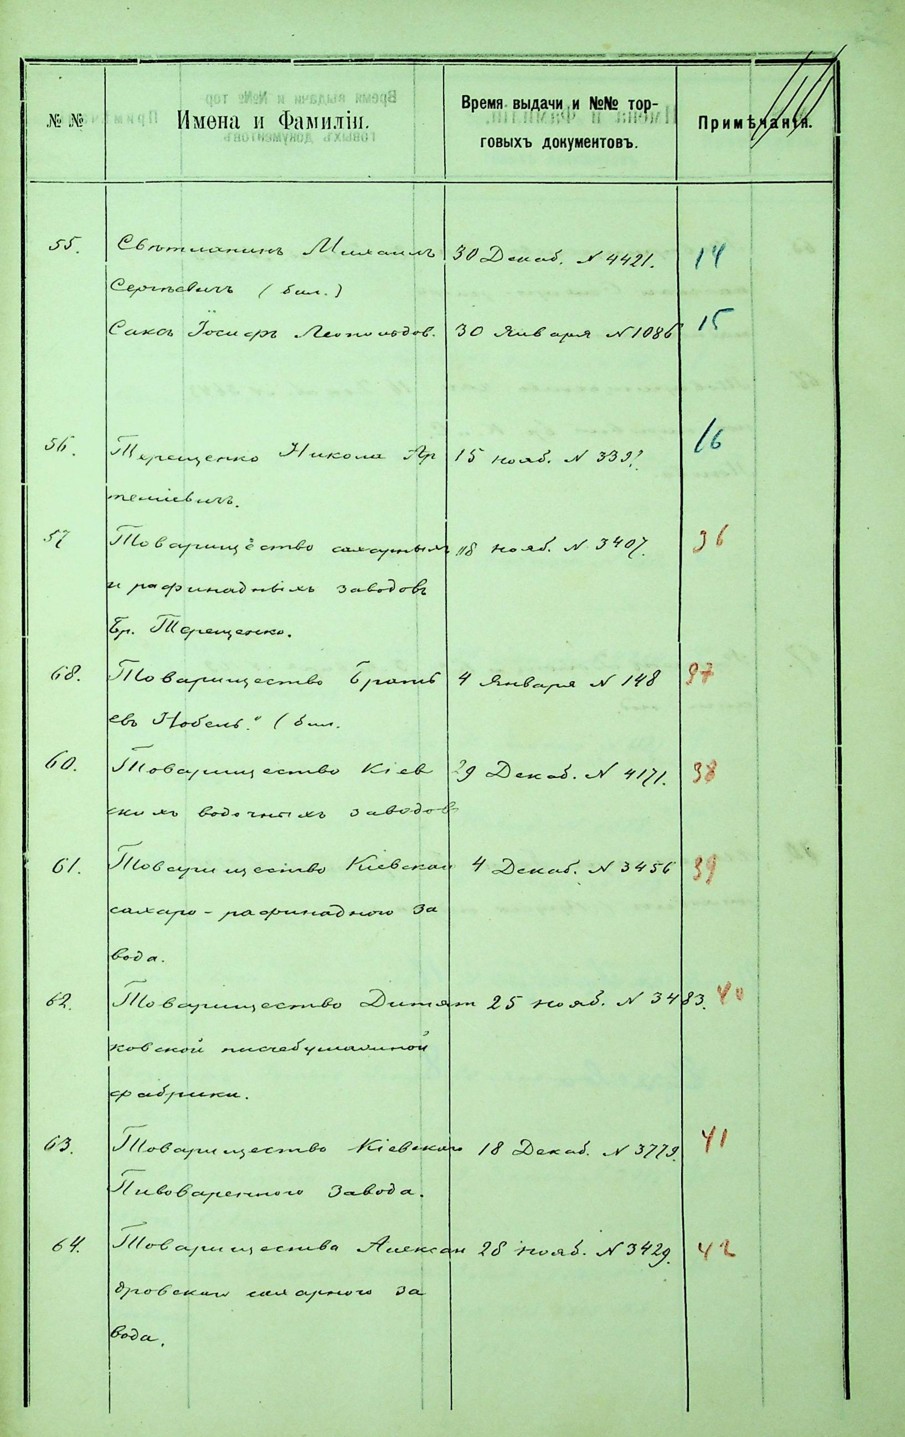 № №
Имена и Фамиліи.
Время выдачи и №№ тор-
говыхъ документовъ.
Примѣчанія.
55. Свѣтланинъ Михаилъ 30 Декаб. № 4421. 14
Сергѣевичъ (бил.)
Саксъ Іосифъ Леопольдов. 30 Января № 1086 15
56. Терещенко Никола Ар 15 нояб. № 16
темiевичъ.
57 Товарищество сахарныхъ 18 нояб. № 3407. 36
и рафинадныхъ заводовъ
Бр. Терещенко.
68. Товарищество Братьѣ 4 Января № 148 37
евъ Нобель." (бил.
60. Товарищество Кіев 29 Декаб. № 4171. 38
скихъ водочныхъ заводовъ
61. Товарищество Кіевскаго 4 Декаб. № 3456 39
сахаро-рафинадного За
вода.
62. Товарищество Дитят 25 нояб. № 3483. 40
ковской писчебумажной
фабрики.
63. Товарищество Кіевскаго 18 Декаб. № 3779. 41
Пивоваренного Завода.
64. Товарищества Алексан 28 нояб. № 3429. 42
дровскаго сахарного За
вода.